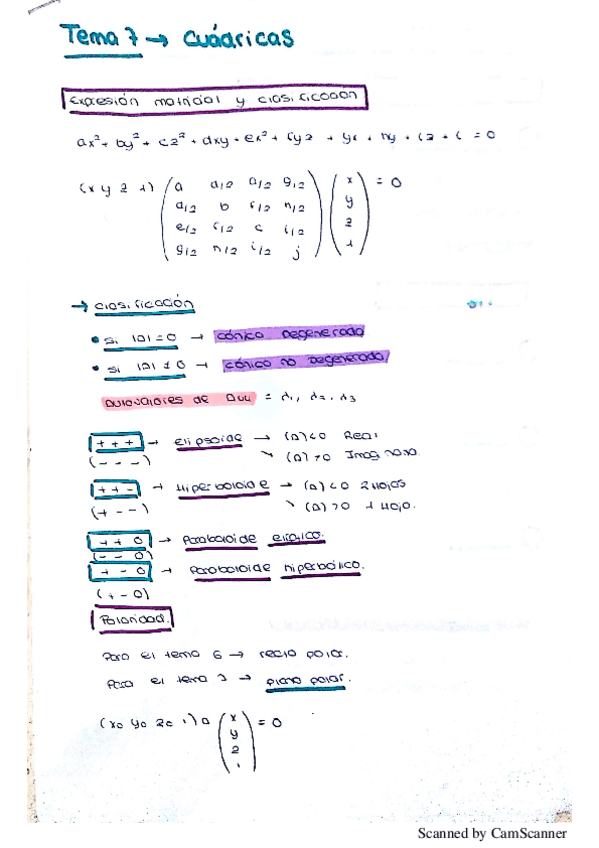 Tema 7 → cuádricas
Expresión matricial y clasificación
ax² + by² + cz² + dxy + exz + fyz + gx + hy + iz + j = 0
(x y z 1) ( a d/2 e/2 g/2 ) ( x ) = 0
d/2 b f/2 h/2 y
e/2 f/2 c i/2 z
g/2 h/2 i/2 j 1
→ clasificación
• si |A| = 0 → cónica Degenerada
• si |A| ≠ 0 → cónica no Degenerada
autovalores de A44 = λ1, λ2, λ3
+ + + → elipsoide → |A| < 0 Real
(- - -) ↘ |A| > 0 Imaginario.
+ + - → Hiperboloide → |A| < 0 2 Hojas
(+ - -) ↘ |A| > 0 1 Hoja.
+ + 0 → Paraboloide elíptico.
(- - 0)
+ - 0 → Paraboloide hiperbólico.
(+ - 0)
Polaridad.
Para el tema 6 → recta polar.
Para el tema 7 → plano polar.
(x0 y0 z0 1) A ( x ) = 0
y
z
1
Scanned by CamScanner